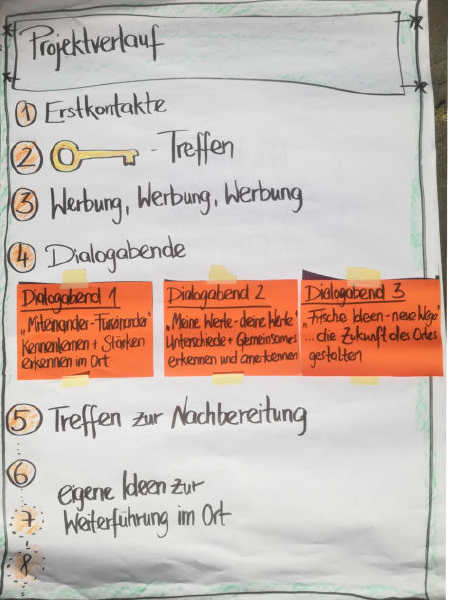 Projektverlauf
1 Erstkontakte
2 - Treffen
3 Werbung, Werbung, Werbung
4 Dialogabende
Dialogabend 1
"Miteinander-Füreinander"
Kennenlernen + Stärken
erkennen im Ort
Dialogabend 2
"Meine Werte-deine Werte"
Unterschiede + Gemeinsames
erkennen und anerkennen
Dialogabend 3
"Frische Ideen-neue Wege"
...die Zukunft des Ortes
gestalten
5 Treffen zur Nachbereitung
6
eigene Ideen zur
7 Weiterführung im Ort
8